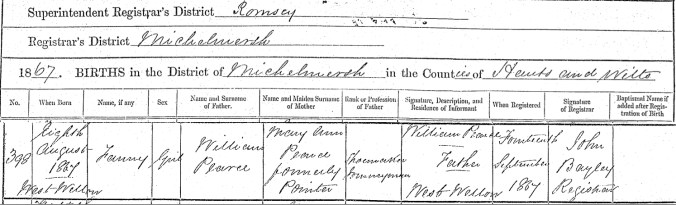 Superintendent Registrar's District Romsey
Registrar's District Michelmersh
1867. BIRTHS in the District of Michelmersh in the Counties of Hants and Wilts
No. When Born Name, if any Sex Name and Surname of Father. Name and Maiden Surname of Mother. Rank or Profession of Father Signature, Description, and Residence of Informant When Registered Signature of Registrar Baptismal Name if added after Registration of Birth
398
Eighth
August
1867
West Wellow
Fanny
Girl
William
Pearce
Mary Ann
Pearce
formerly
Pointer
Shoemaker
Journeyman
William Pearce
Father
West Wellow
Fourteenth
September
1867
John
Bayley
Registrar